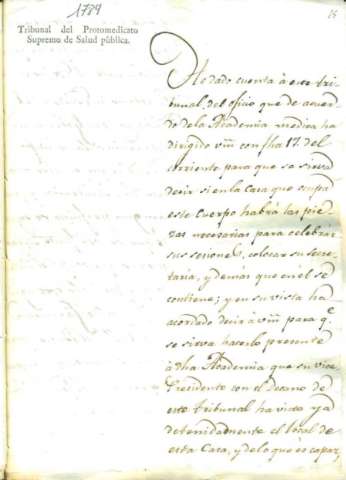 1789
Tribunal del Protomedicato
Supremo de Salud pública.
He dado cuenta à este tri-
bunal del oficio que de acuer-
do de la Academia medica ha
dirigido vm con fha 17. del
corriente para que se sirva
decir si en la Casa que ocupa
este Cuerpo habrá las pie-
zas necesarias para celebrar
sus sesiones, colocar su Secre-
taría, y demás que en el se
contiene; y en su vista ha
acordado decir à vm para q.e
se sirva hacerlo presente
à dha Academia que su vice
Presidente con el Decano de
este tribunal ha visto ya
detenidamente el local de
esta Casa, y de lo que es capaz,